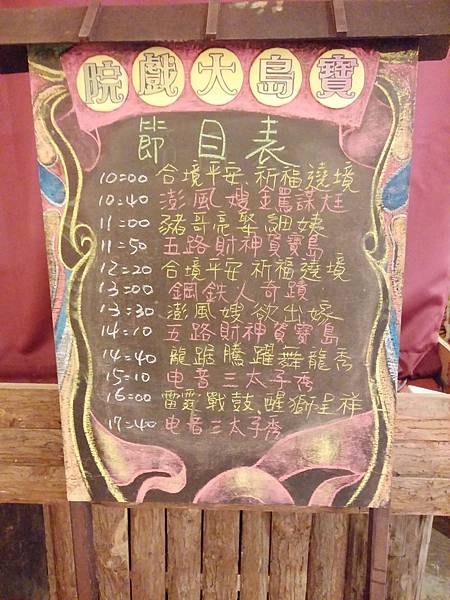 寶島大戲院
節目表
10:00 合境平安 祈福遶境
10:40 澎風嫂主罵誅大尪
11:00 豬哥亮娶細姨
11:50 五路財神賀寶島
12:20 合境平安祈福遶境
13:00 鋼鉄人奇蹟
13:30 澎風嫂欲出嫁
14:10 五路財神賀寶島
14:40 龍踞騰躍舞龍秀
15:10 电音三太子秀
16:00 雷霆戰鼓、醒獅呈祥
17:40 电音三太子秀